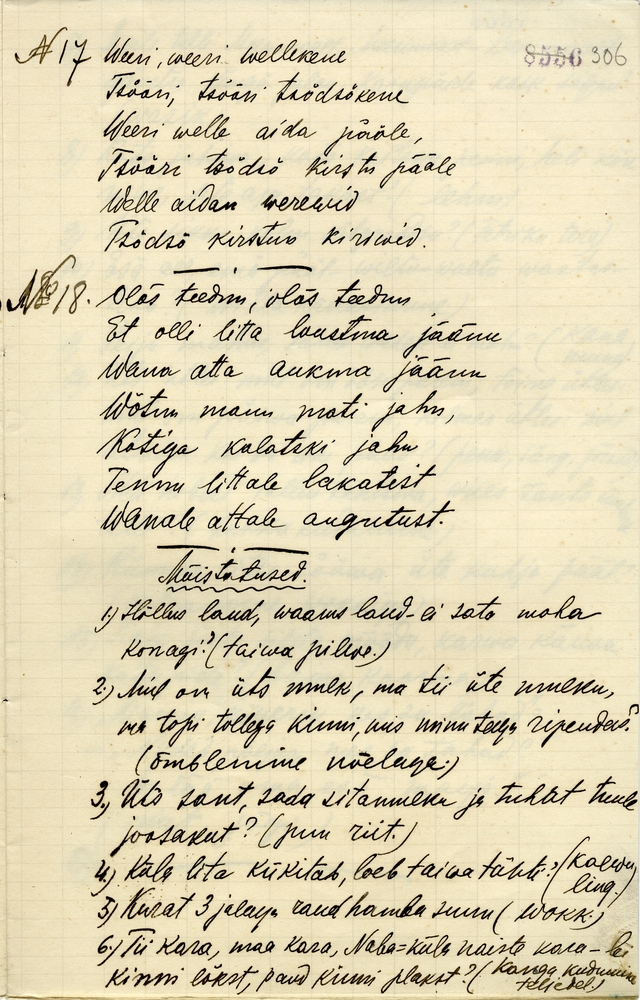 № 17 Weeri, weeri wellekene
8556 306
Tsööri, tsööri tsõdsõkene
Weeri welle aida pääle,
Tsööri tsõdsõ kirstu pääle
Welle aidan werewid
Tsõdsõ kirstun kiriwid.
№ 18. Olõs teednu, olõs teednu
Et olli litta lonstma jäänu
Wana atta aukma jäänu
Wõtnu mannu mati jahu,
Kotiga kalatski jahu
Tennu littale lakatist
Wanale attale augutust.
Mõistatused.
1.) Hõllus laud, waarus laud - ei sata maha
konagi? (taiwa pilwe.)
2.) Mul om üts mulk, ma tii üte mulku,
ma topi tollega kinni, mis minu taga ripendas?
(õmblemine nõelaga.)
3.) Üts sant, sada sitamulku ja tuhat tuule
joosakut? (puu riit.)
4.) Külä lita kükitab, loeb taiwa tähti? (kaewu
ling.)
5.) Kurat 3 jalaga raud hamba suun (wokk.)
6.) Tii kara, maa kara, Naba=külä naiste kara - lei
kinni lõkst, pand kinni plakst? (Kanga kudumise
teljed.)